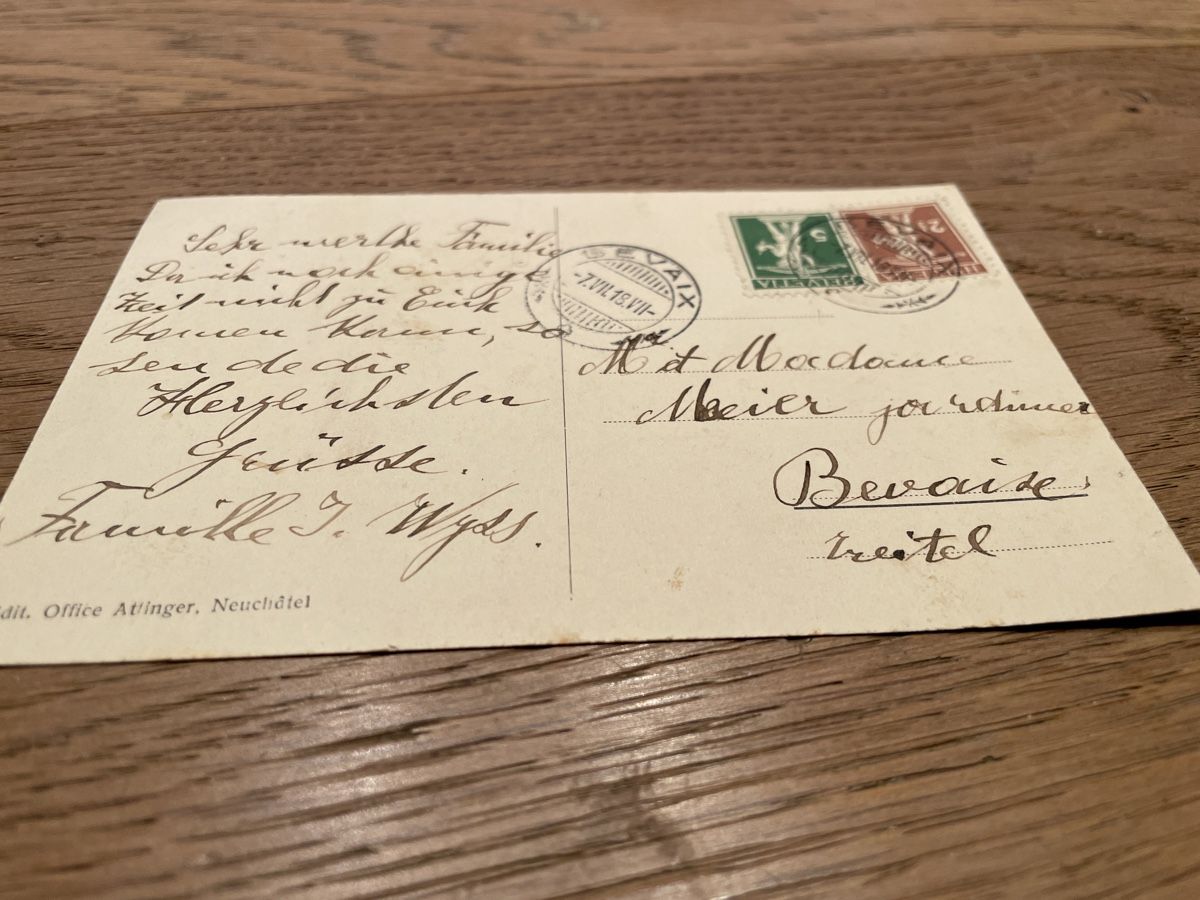 Sehr werthe Familie
Da ich noch einige
Zeit nicht zu Euch
komen kann, so
sende die
Herzlichsten
Grüsse.
Famille J. Wyss.
dit. Office Attinger, Neuchâtel
BEVAIX
-7.VII.18.VII-
HELVETIA
5
2½
M et Madame
Meier jardinier
Bevaise
Treitel